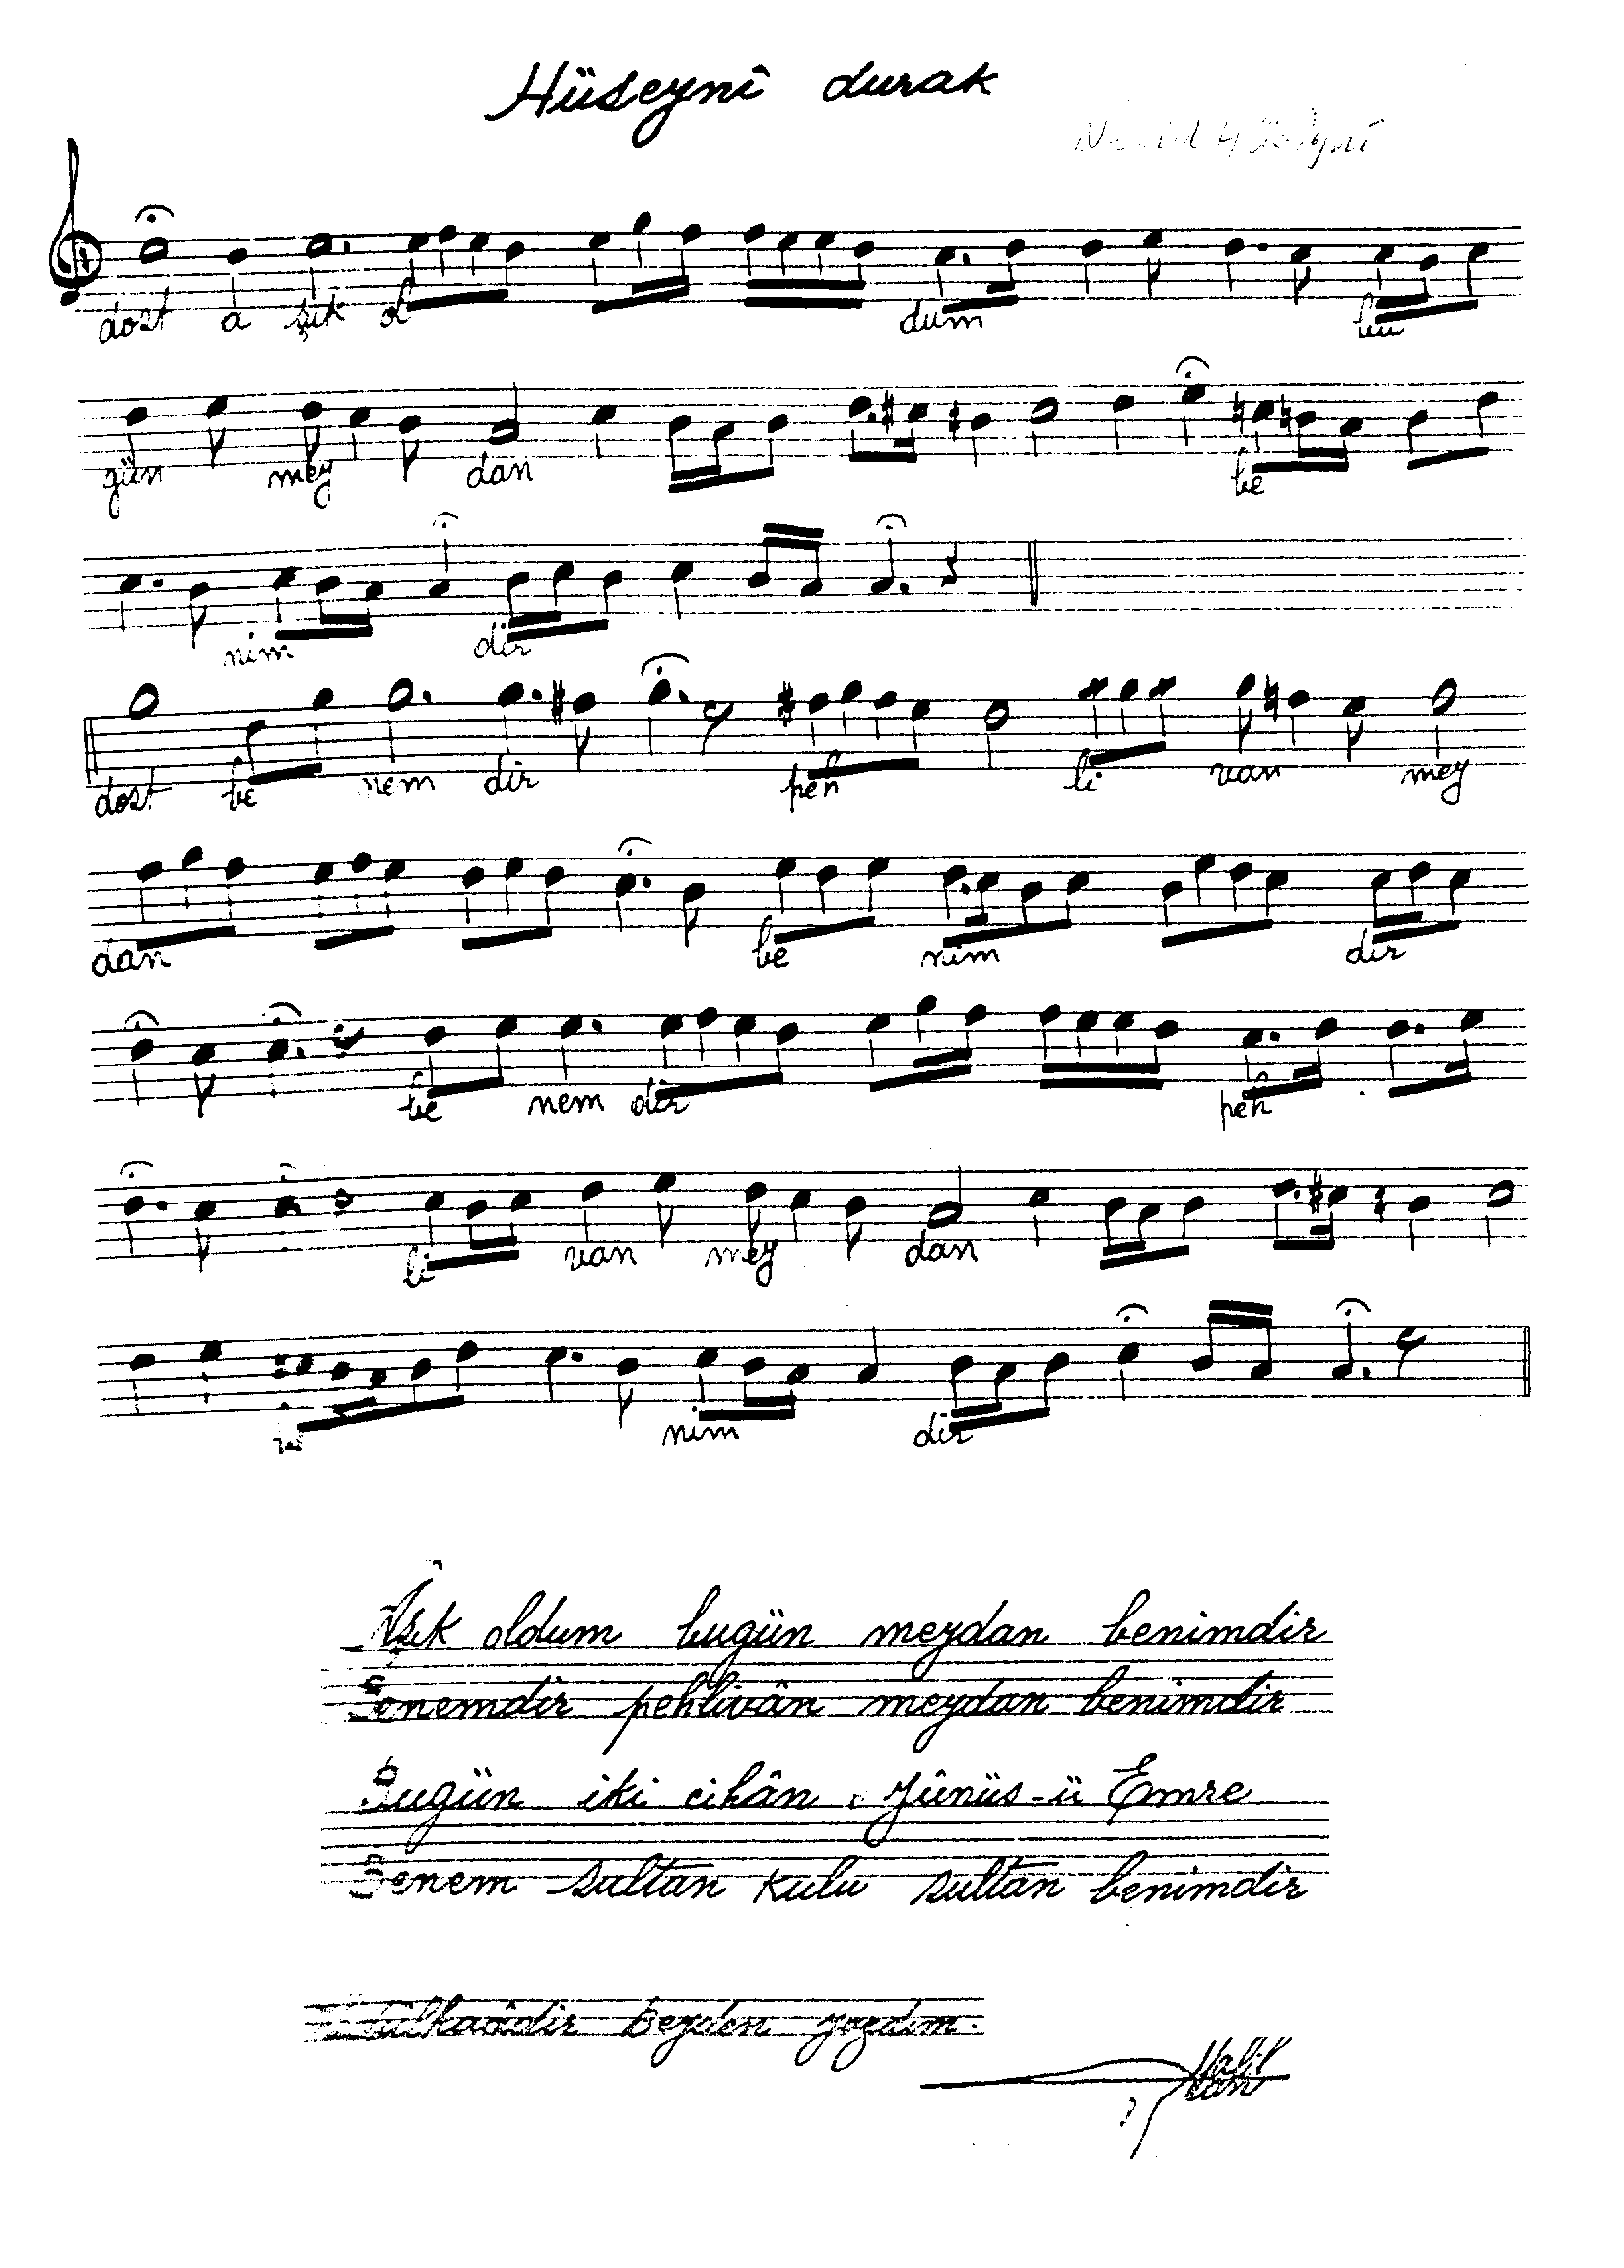 Hüseynî durak
dost a şık ol dum bu
gün mey dan be
nim dir
dost be nem dir peh li van mey
dan be nim dir
be nem dir peh
li van mey dan
nim dir
Âşık oldum bugün meydan benimdir
Benemdir pehlivân meydan benimdir
Bugün iki cihân Yûnüs-ü Emre
Benem sultan kulu sultan benimdir
beyden yazdım.
Halil Can